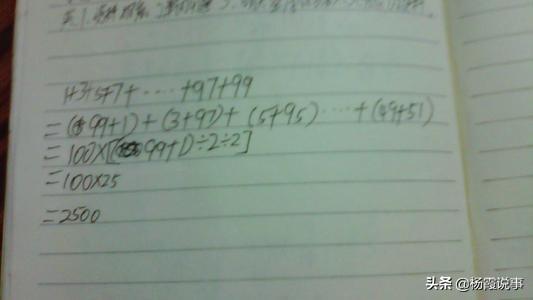 1+3+5+7+……+97+99
=(99+1)+(3+97)+(5+95)……+(49+51)
=100×[(99+1)÷2÷2]
=100×25
=2500
头条 @杨霞说事